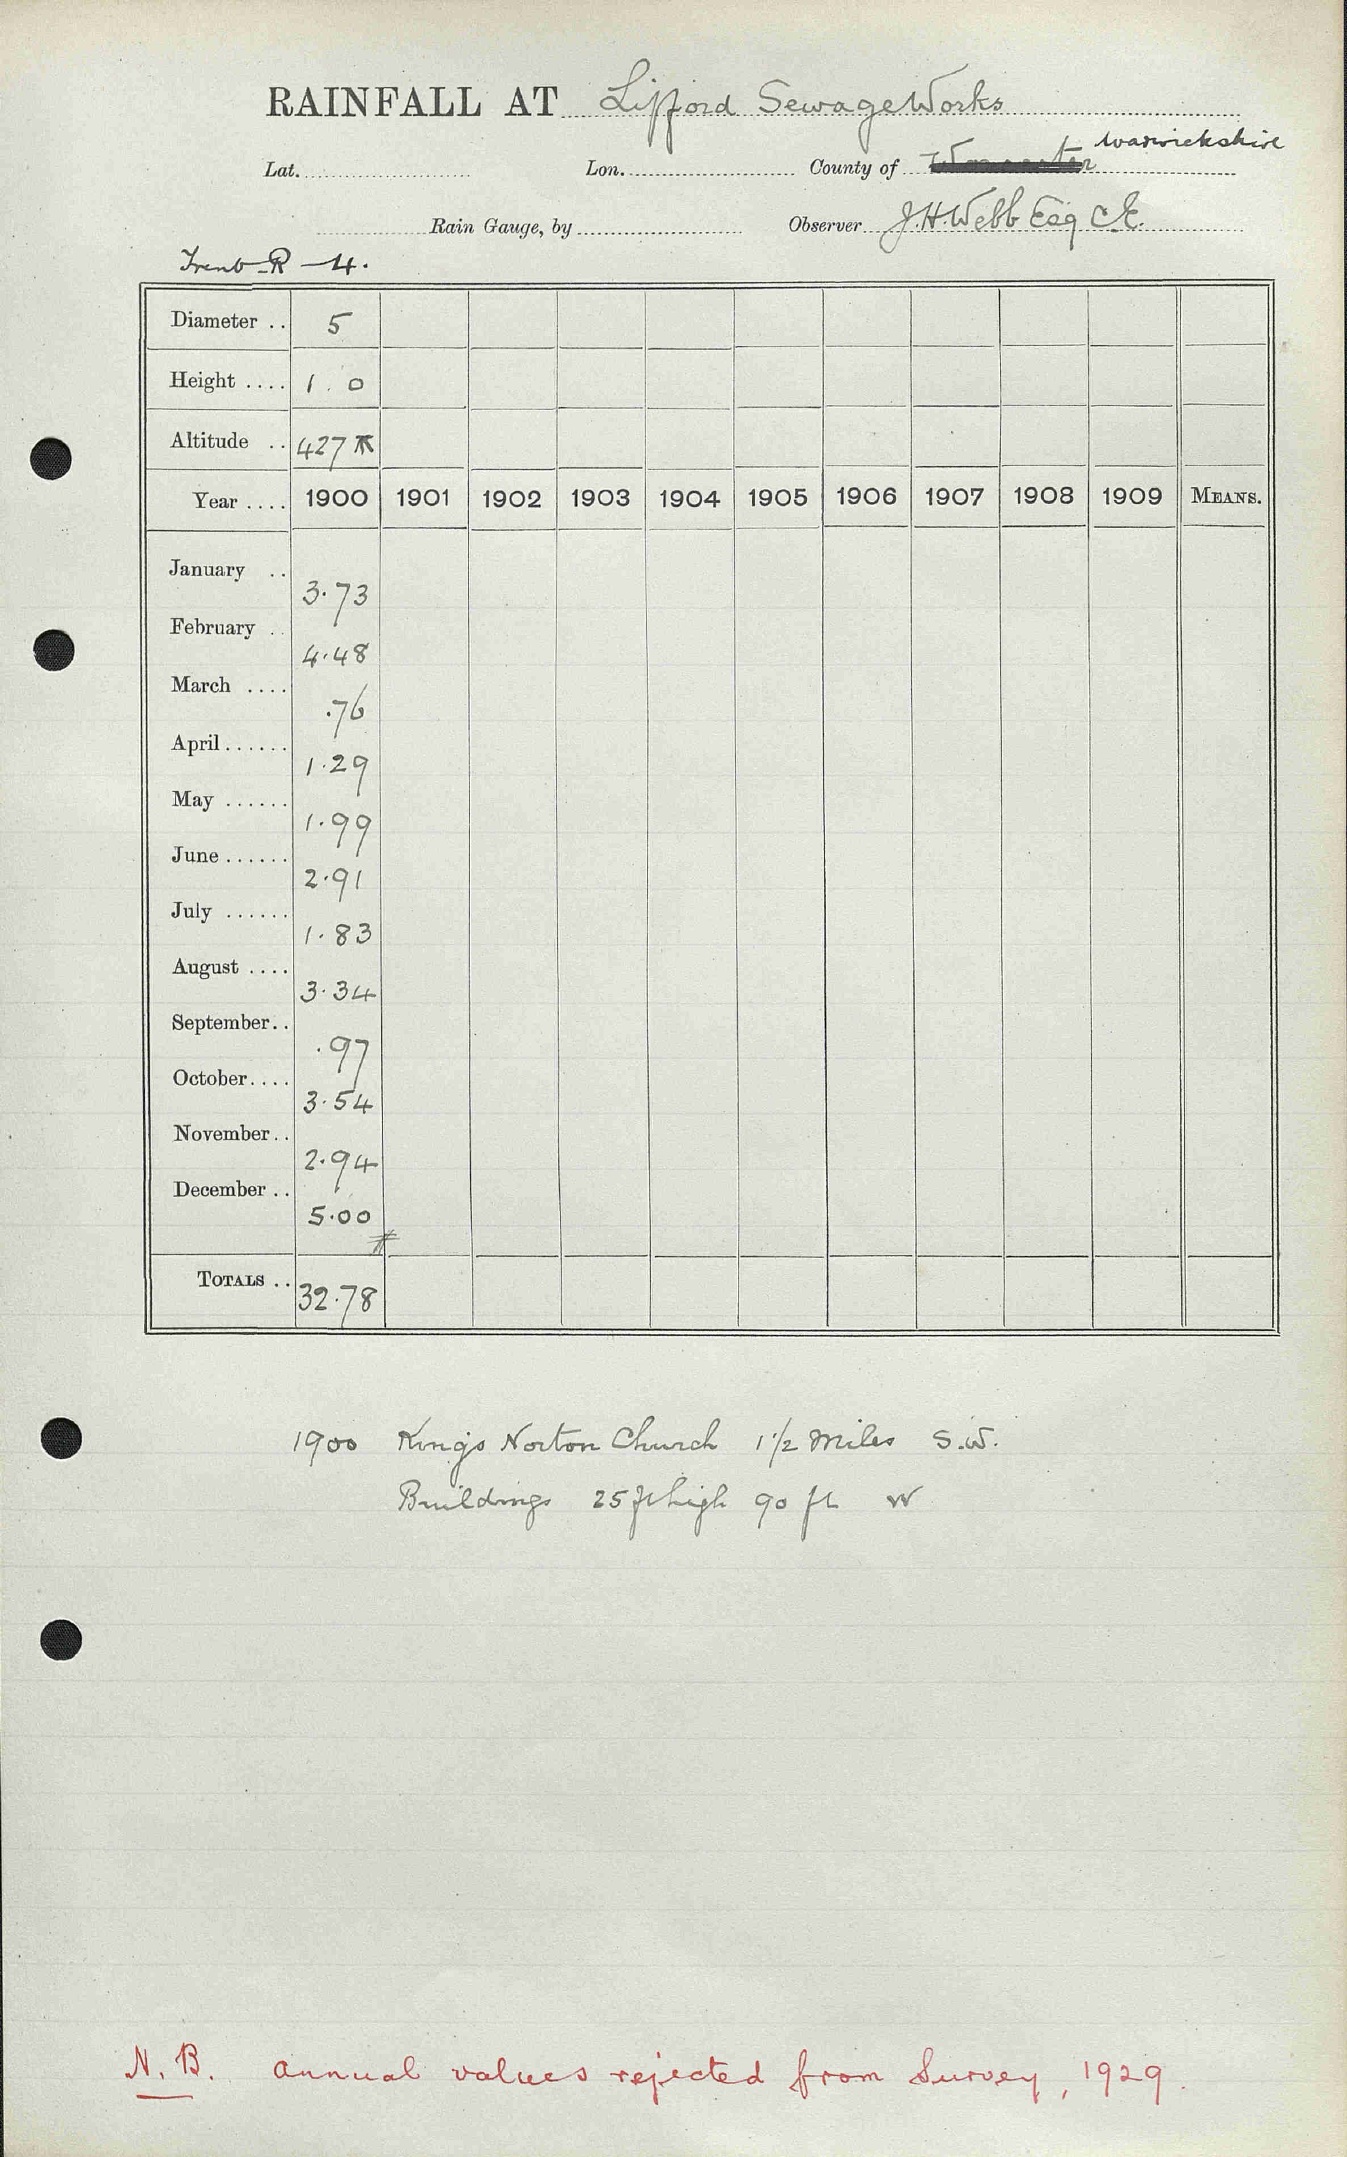 RAINFALL AT Lifford Sewage Works
Warwickshire
Lat. Lon. County of Worcester
Rain Gauge, by Observer J.H. Webb Esq C.E.
Trent R 4.
Diameter .. 5
Height .... 1. 0
Altitude .. 427
Year .... 1900 1901 1902 1903 1904 1905 1906 1907 1908 1909 MEANS.
January .. 3.73
February .. 4.48
March .... .76
April ...... 1.29
May ...... 1.99
June ...... 2.91
July ...... 1.83
August .... 3.34
September.. .97
October.... 3.54
November.. 2.94
December .. 5.00
TOTALS .. 32.78
1900 Kings Norton Church 1 1/2 Miles S.W.
Buildings 25 ft high 90 ft W
N.B. annual values rejected from Survey, 1929.